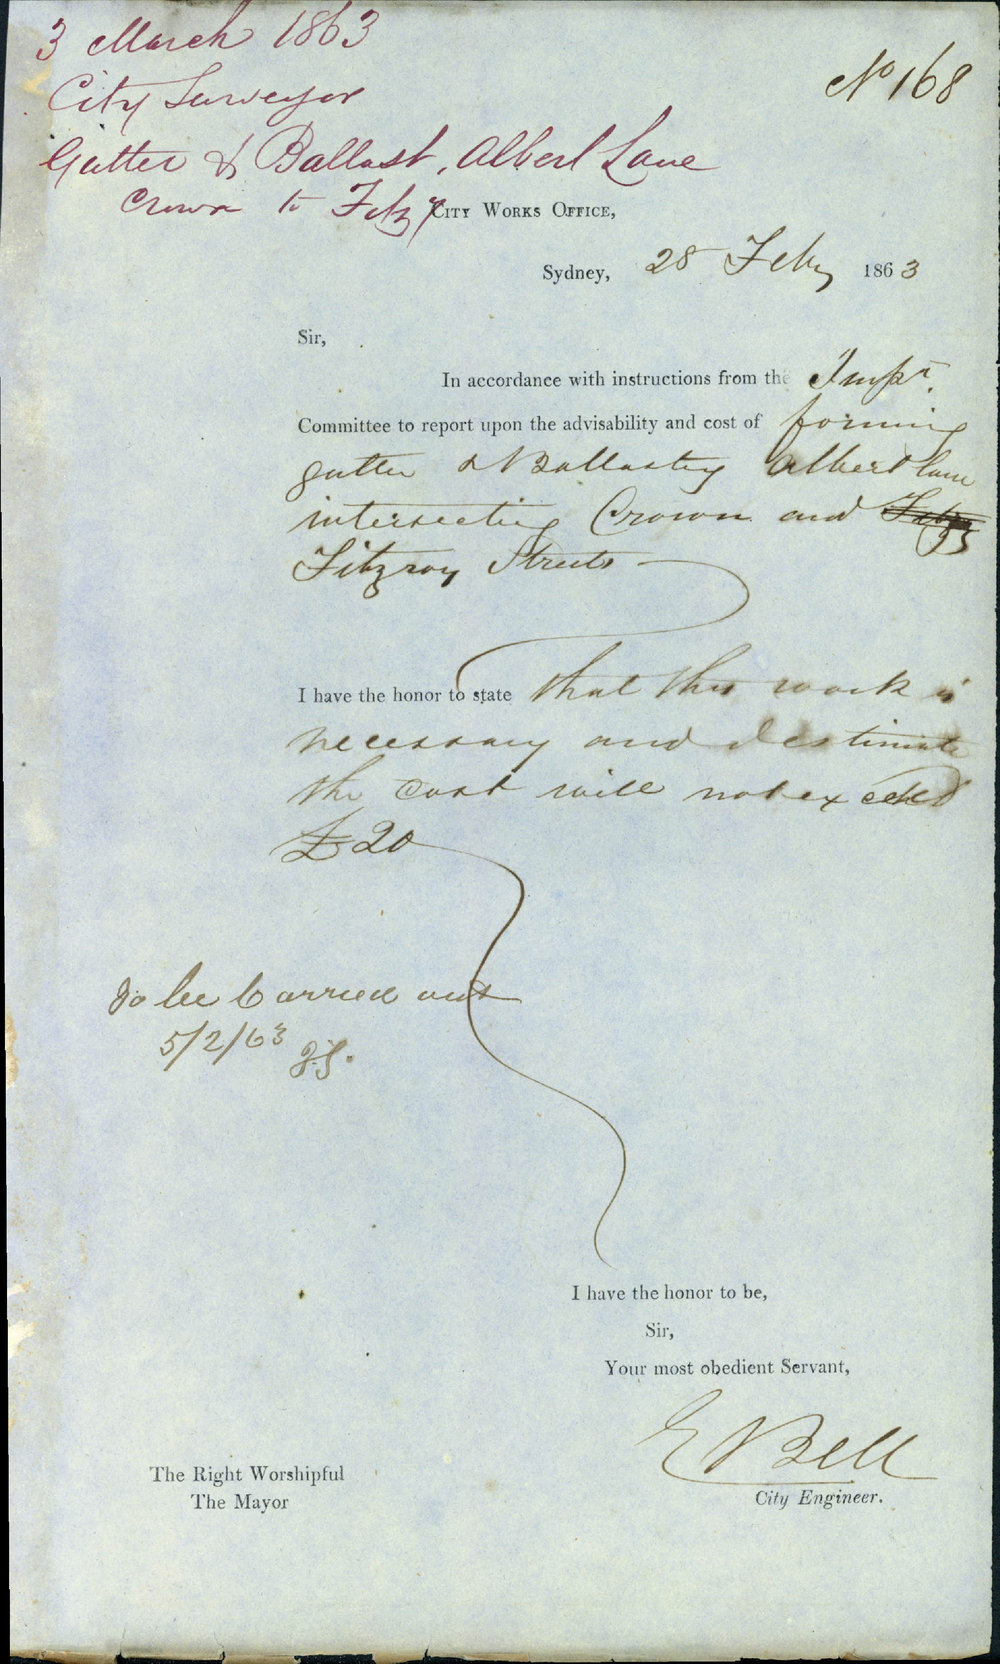 3 March 1863
City Surveyor
Gutter & Ballast, Albert Lane
Crown to Fitzy
No 168
CITY WORKS OFFICE,
Sydney, 28 Feby 1863
Sir,
In accordance with instructions from the Impt.
Committee to report upon the advisability and cost of forming
gutter & Ballasting Albert lane
intersecting Crown and
Fitzroy Streets
I have the honor to state that this work is
necessary and I estimate
the cost will not exceed
£20
To be Carried out
5/2/63 J.S.
I have the honor to be,
Sir,
Your most obedient Servant,
E Bell
City Engineer.
The Right Worshipful
The Mayor